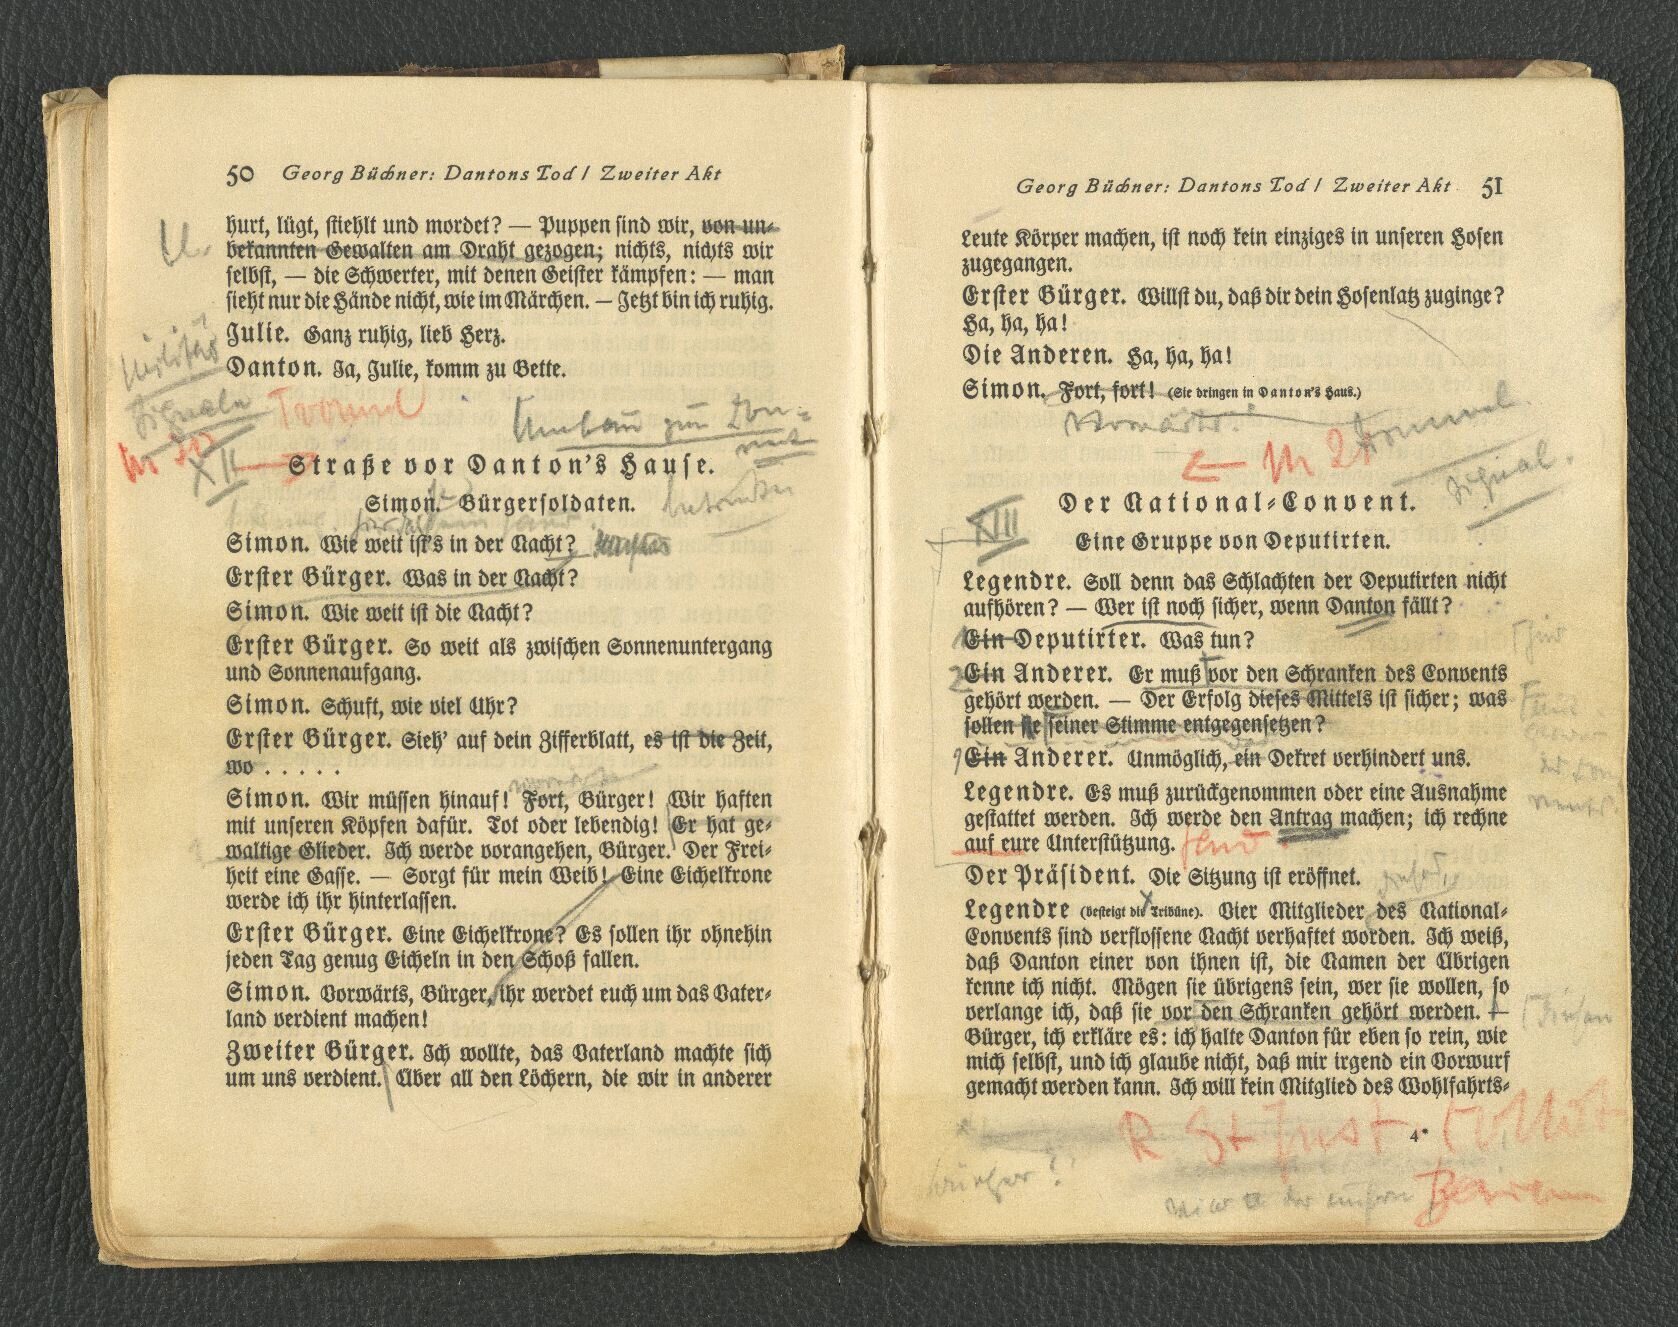 50 Georg Büchner: Dantons Tod / Zweiter Akt
hurt, lügt, stiehlt und mordet? — Puppen sind wir, von un-
bekannten Gewalten am Draht gezogen; nichts, nichts wir
selbst, — die Schwerter, mit denen Geister kämpfen: — man
sieht nur die Hände nicht, wie im Märchen. — Jetzt bin ich ruhig.
Julie. Ganz ruhig, lieb Herz.
Danton. Ja, Julie, komm zu Bette.
Militär
Signale Trommel
Umbau zum Kon-
vent
XII
Straße vor Danton's Hause.
Simon. Bürgersoldaten.
betrunken
Simon. Wie weit ist's in der Nacht?
Erster Bürger. Was in der Nacht?
Simon. Wie weit ist die Nacht?
Erster Bürger. So weit als zwischen Sonnenuntergang
und Sonnenaufgang.
Simon. Schuft, wie viel Uhr?
Erster Bürger. Sieh' auf dein Zifferblatt, es ist die Zeit,
wo . . . . .
vorwärts
Simon. Wir müssen hinauf! Fort, Bürger! Wir haften
mit unseren Köpfen dafür. Tot oder lebendig! Er hat ge-
waltige Glieder. Ich werde vorangehen, Bürger. Der Frei-
heit eine Gasse. — Sorgt für mein Weib! Eine Eichelkrone
werde ich ihr hinterlassen.
Erster Bürger. Eine Eichelkrone? Es sollen ihr ohnehin
jeden Tag genug Eicheln in den Schoß fallen.
Simon. Vorwärts, Bürger, ihr werdet euch um das Vater-
land verdient machen!
Zweiter Bürger. Ich wollte, das Vaterland machte sich
um uns verdient. Über all den Löchern, die wir in anderer
Georg Büchner: Dantons Tod / Zweiter Akt 51
Leute Körper machen, ist noch kein einziges in unseren Hosen
zugegangen.
Erster Bürger. Willst du, daß dir dein Hosenlatz zuginge?
Ha, ha, ha!
Die Anderen. Ha, ha, ha!
Simon. Fort, fort! (Sie dringen in Danton's Haus.)
Vorwärts! Trommel
M 21
Signal.
Der National-Convent.
XIII
Eine Gruppe von Deputirten.
Legendre. Soll denn das Schlachten der Deputirten nicht
aufhören? — Wer ist noch sicher, wenn Danton fällt?
1 Ein Deputirter. Was tun?
2 Ein Anderer. Er muß vor den Schranken des Convents
gehört werden. — Der Erfolg dieses Mittels ist sicher; was
sollen sie seiner Stimme entgegensetzen?
Ein Anderer. Unmöglich, ein Dekret verhindert uns.
Legendre. Es muß zurückgenommen oder eine Ausnahme
gestattet werden. Ich werde den Antrag machen; ich rechne
auf eure Unterstützung.
Der Präsident. Die Sitzung ist eröffnet.
Legendre (besteigt die Tribüne). Vier Mitglieder des National-
Convents sind verflossene Nacht verhaftet worden. Ich weiß,
daß Danton einer von ihnen ist, die Namen der Übrigen
kenne ich nicht. Mögen sie übrigens sein, wer sie wollen, so
verlange ich, daß sie vor den Schranken gehört werden. —
Bürger, ich erkläre es: ich halte Danton für eben so rein, wie
mich selbst, und ich glaube nicht, daß mir irgend ein Vorwurf
gemacht werden kann. Ich will kein Mitglied des Wohlfahrts-
R St Just Collot
4*